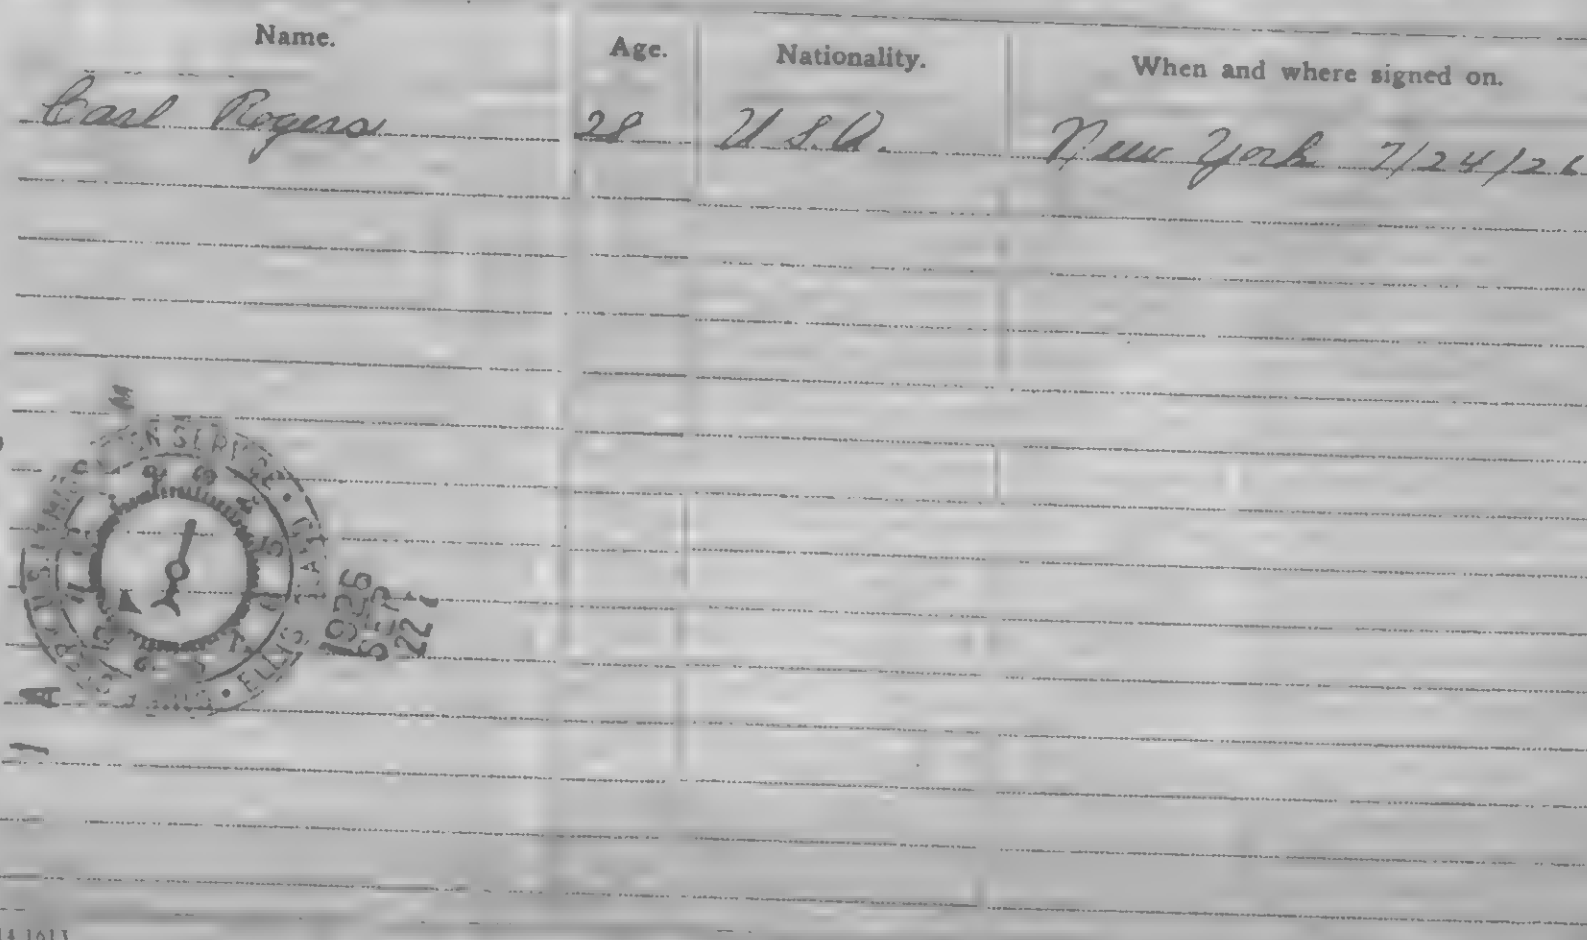 Name. Age. Nationality. When and where signed on.
Carl Rogers 28 U.S.A. New York 7/24/26
M
U.S. IMMIGRATION SERVICE • ELLIS
1926
SEP
22
A
14-1613